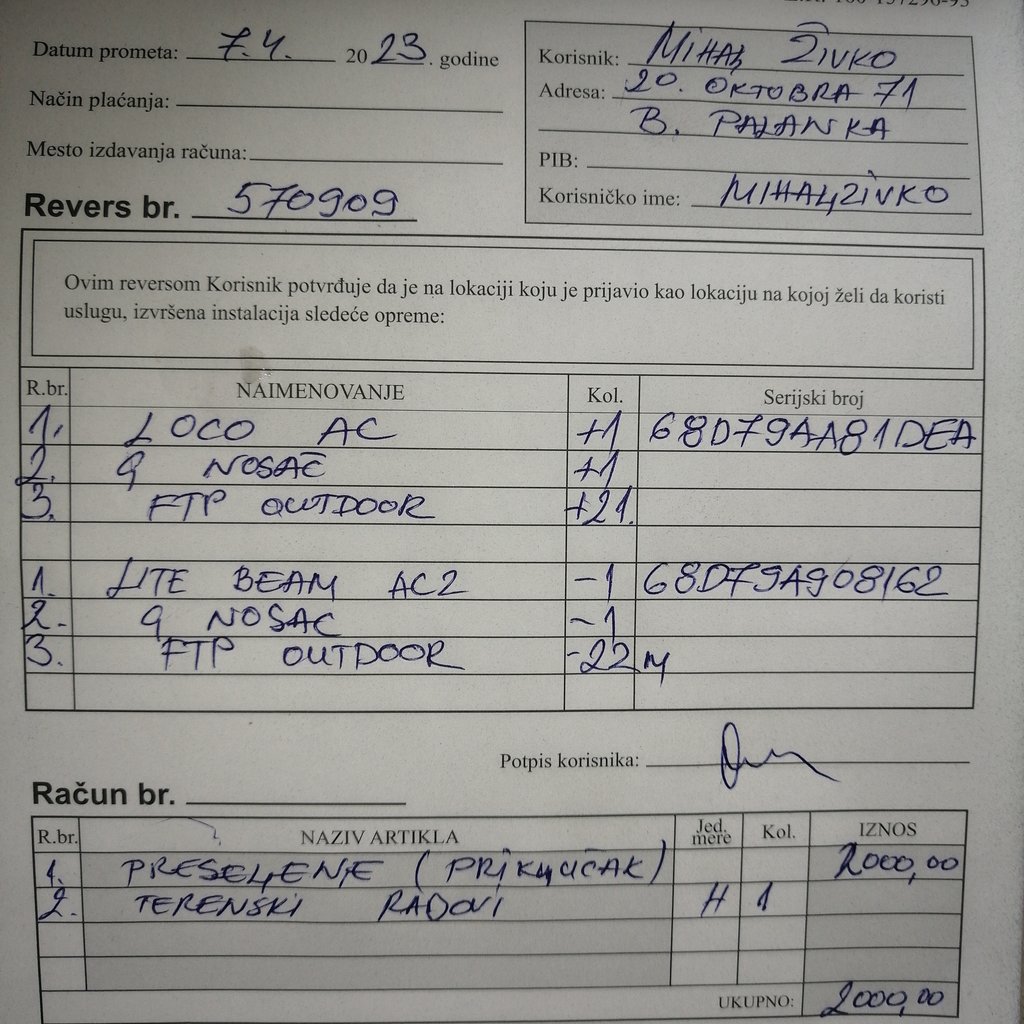 Datum prometa: 7.4. 2023. godine
Način plaćanja:
Mesto izdavanja računa:
Revers br. 570909
Korisnik: MIHALJ ŽIVKO
Adresa: 20. OKTOBRA 71
B. PALANKA
PIB:
Korisničko ime: MIHALJZIVKO
Ovim reversom Korisnik potvrđuje da je na lokaciji koju je prijavio kao lokaciju na kojoj želi da koristi
uslugu, izvršena instalacija sledeće opreme:
R.br. NAIMENOVANJE Kol. Serijski broj
1. LOCO AC +1 68D79AA81DEA
2. G NOSAČ +1
3. FTP OUTDOOR +21.
1. LITE BEAM AC2 -1 68D79A908162
2. G NOSAC -1
3. FTP OUTDOOR -22 M
Potpis korisnika:
Račun br.
R.br. NAZIV ARTIKLA Jed. mere Kol. IZNOS
1. PRESELJENJE (PRIKLJUČAK) 2000,00
2. TERENSKI RADOVI H 1
UKUPNO: 2000,00